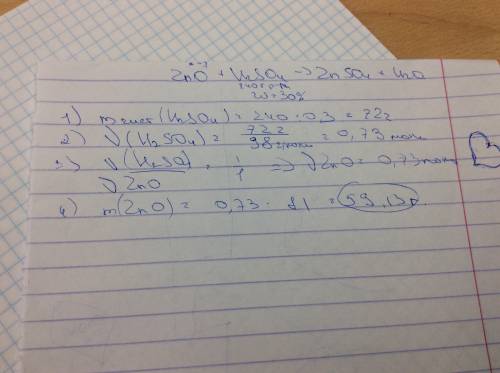 m-?
ZnO + H₂SO₄ → ZnSO₄ + H₂O
240гр-ра
W=30%
1) m чист (H₂SO₄) = 240 · 0,3 = 72г
2) ν(H₂SO₄) = 72г / 98г/моль = 0,73 моль
3) ν(H₂SO) / νZnO = 1/1 => νZnO = 0,73 моль
4) m(ZnO) = 0,73 · 81 = 59,13г.